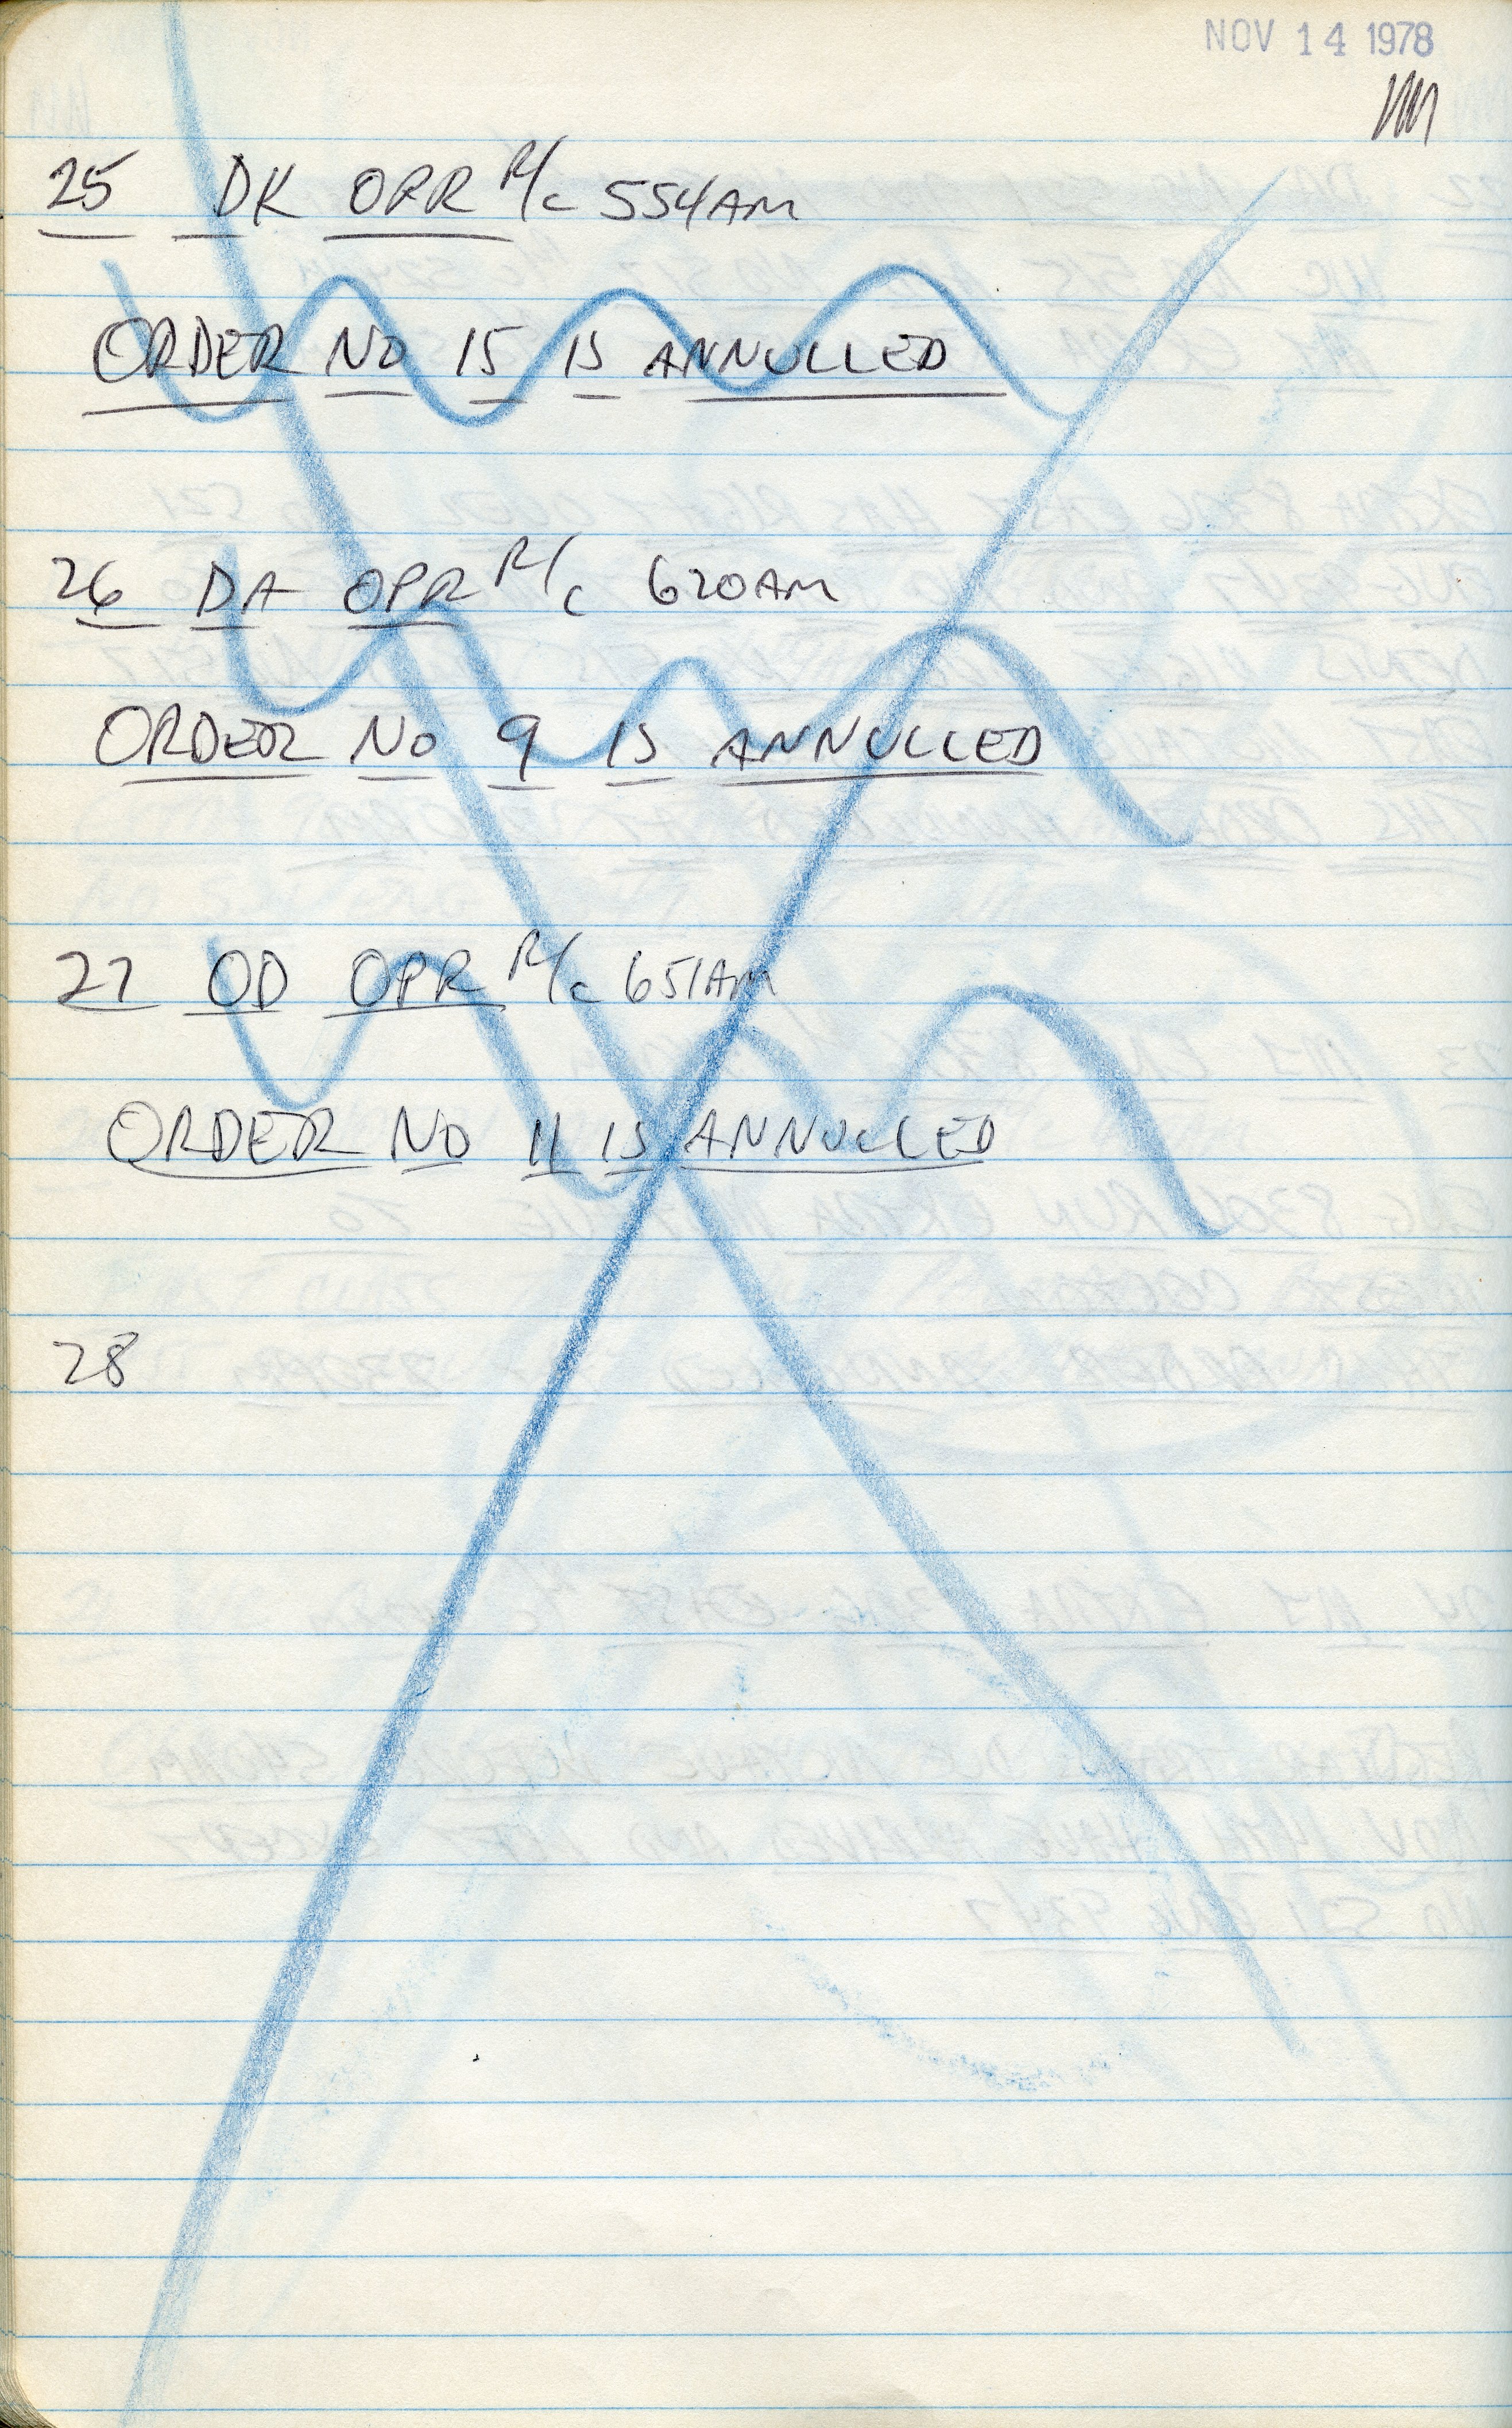 NOV 14 1978
25 DK OPR R/C 554AM
ORDER NO 15 IS ANNULLED
26 DA OPR R/C 620AM
ORDER NO 9 IS ANNULLED
27 OD OPR R/C 651AM
ORDER NO 11 IS ANNULLED
28